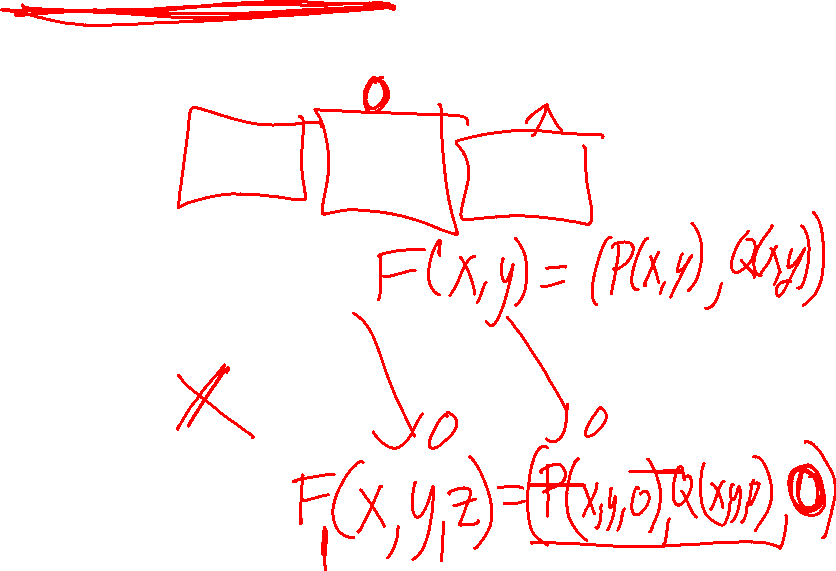 0 1
F(x,y) = (P(x,y), Q(x,y))
X
0 0
F₁(x,y,z) = (P(x,y,0), Q(x,y,0), 0)